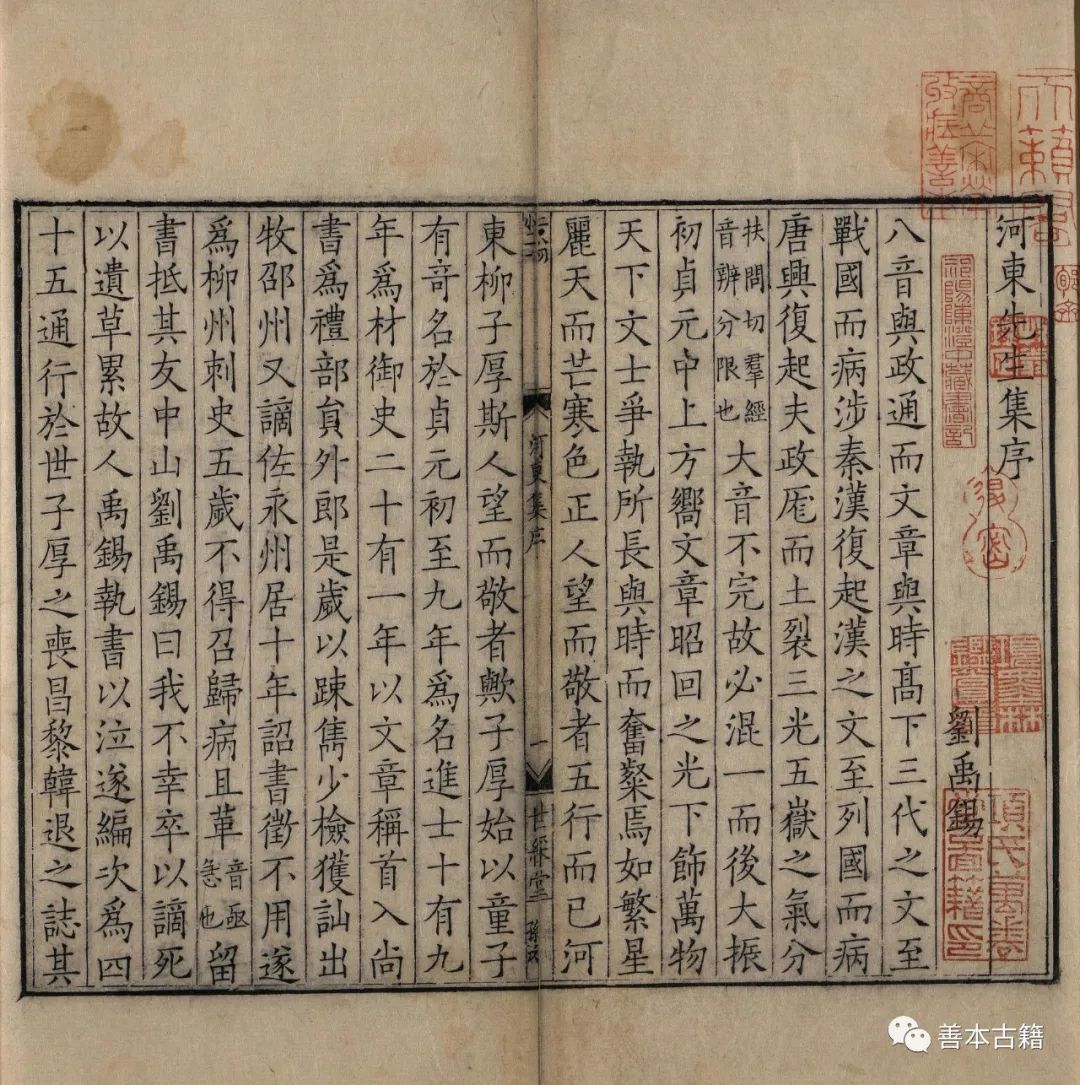 河東先生集序
劉禹錫
八音與政通而文章與時髙下三代之文至
戰國而病涉秦漢復起漢之文至列國而病
唐興復起夫政厖而土裂三光五嶽之氣分
扶問切羣經
音辨分限也
大音不完故必混一而後大振
初貞元中上方嚮文章昭回之光下飾萬物
天下文士爭執所長與時而奮粲焉如繁星
麗天而芒寒色正人望而敬者五行而已河
河東集序
一
世綵堂
東柳子厚斯人望而敬者歟子厚始以童子
有竒名於貞元初至九年爲名進士十有九
年爲材御史二十有一年以文章稱首入尚
書爲禮部員外郎是歲以踈雋少檢獲訕出
牧邵州又謫佐永州居十年詔書徵不用遂
爲柳州刺史五歲不得召歸病且革
音亟
急也
留
書抵其友中山劉禹錫曰我不幸卒以謫死
以遺草累故人禹錫執書以泣遂編次爲四
十五通行於世子厚之喪昌黎韓退之誌其
項氏萬卷
堂圖籍印
祁陽陳澄中藏書記
善本古籍